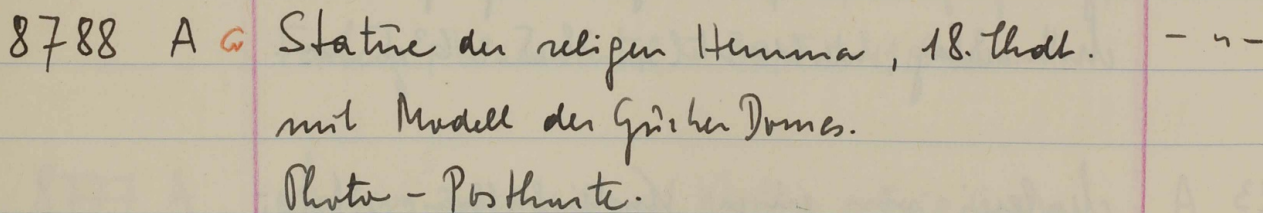 8788 A G Statue der seligen Hemma, 18. Jhdt. - " -
mit Modell des Gurker Domes.
Photo - Postkarte.